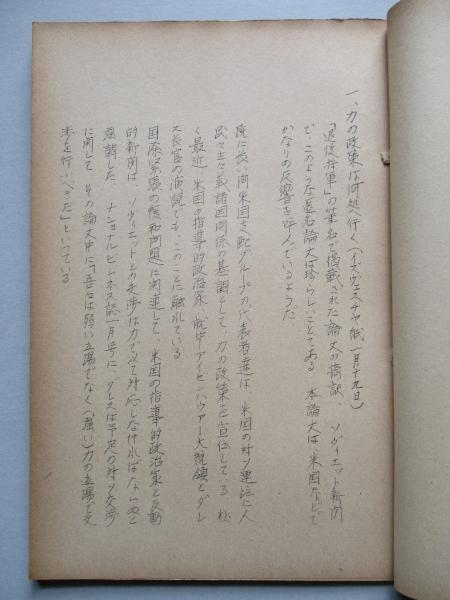 一、力の政策は何処へ行く(イズヴェスチヤ紙一月十九日)
「退役将軍」の筆名で掲載された論文の摘訳、ソヴィエット新聞
で、このような匿名論文は珍らしいことである 本論文は、米国などで
かなりの反響を呼んでいるようだ
既に長い間米国支配グループの代表者達は、米国の対ソ連並に人
民々主々義諸国関係の基調として、力の政策を宣伝している 極
く最近、米国の指導的政治家、就中アイゼンハウアー大統領とダレ
ス長官の演説でも、このことに触れている
国際緊張の緩和問題に関連して、米国の指導的政治家と反動
的新聞は ソヴィエットとの交渉は力を以て対応しなければならぬと
強調した、ナショナルビジネス誌一月号に、ダレスは予定の対ソ交渉
に関して、その論文中に「吾々は弱い立場でなく(強い)力の立場で交
渉を行ふべきだ」といっている